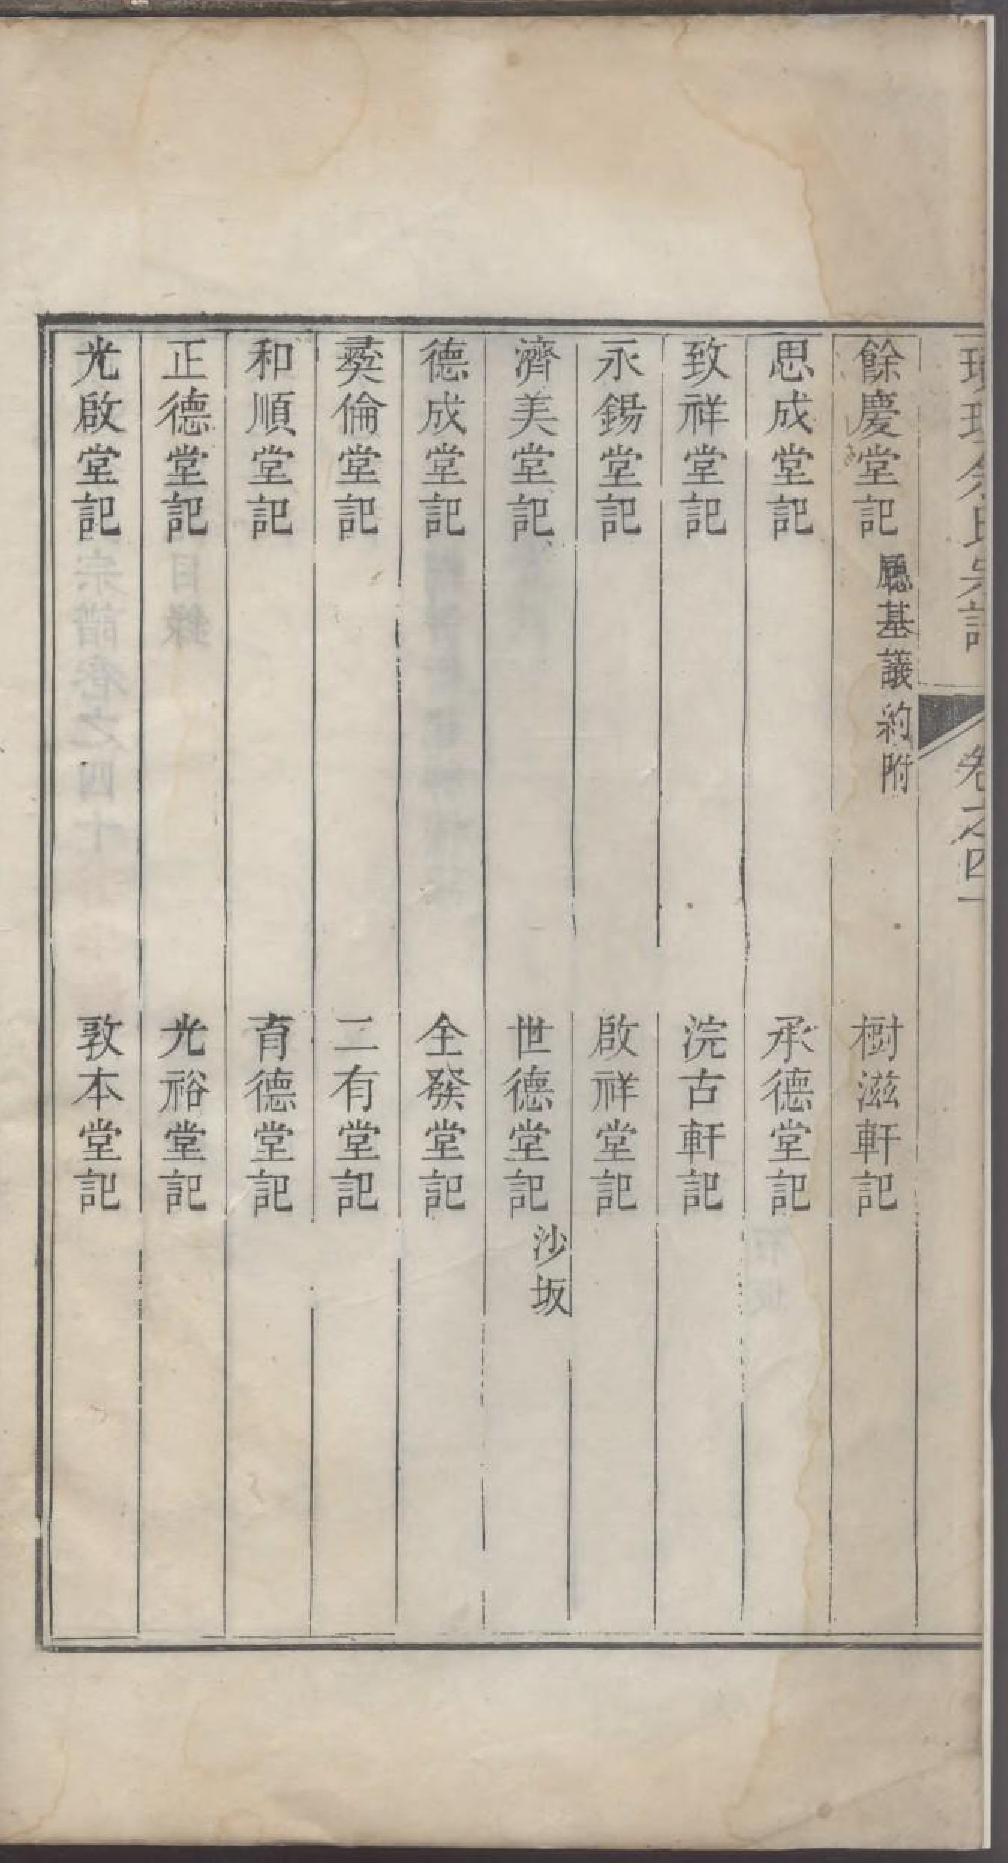 余氏宗譜
卷之四
餘慶堂記 廳基議約附 樹滋軒記
思成堂記 承德堂記
致祥堂記 浣古軒記
永錫堂記 啟祥堂記
濟美堂記 世德堂記 沙坂
德成堂記 全發堂記
彝倫堂記 二有堂記
和順堂記 育德堂記
正德堂記 光裕堂記
光啟堂記 敦本堂記